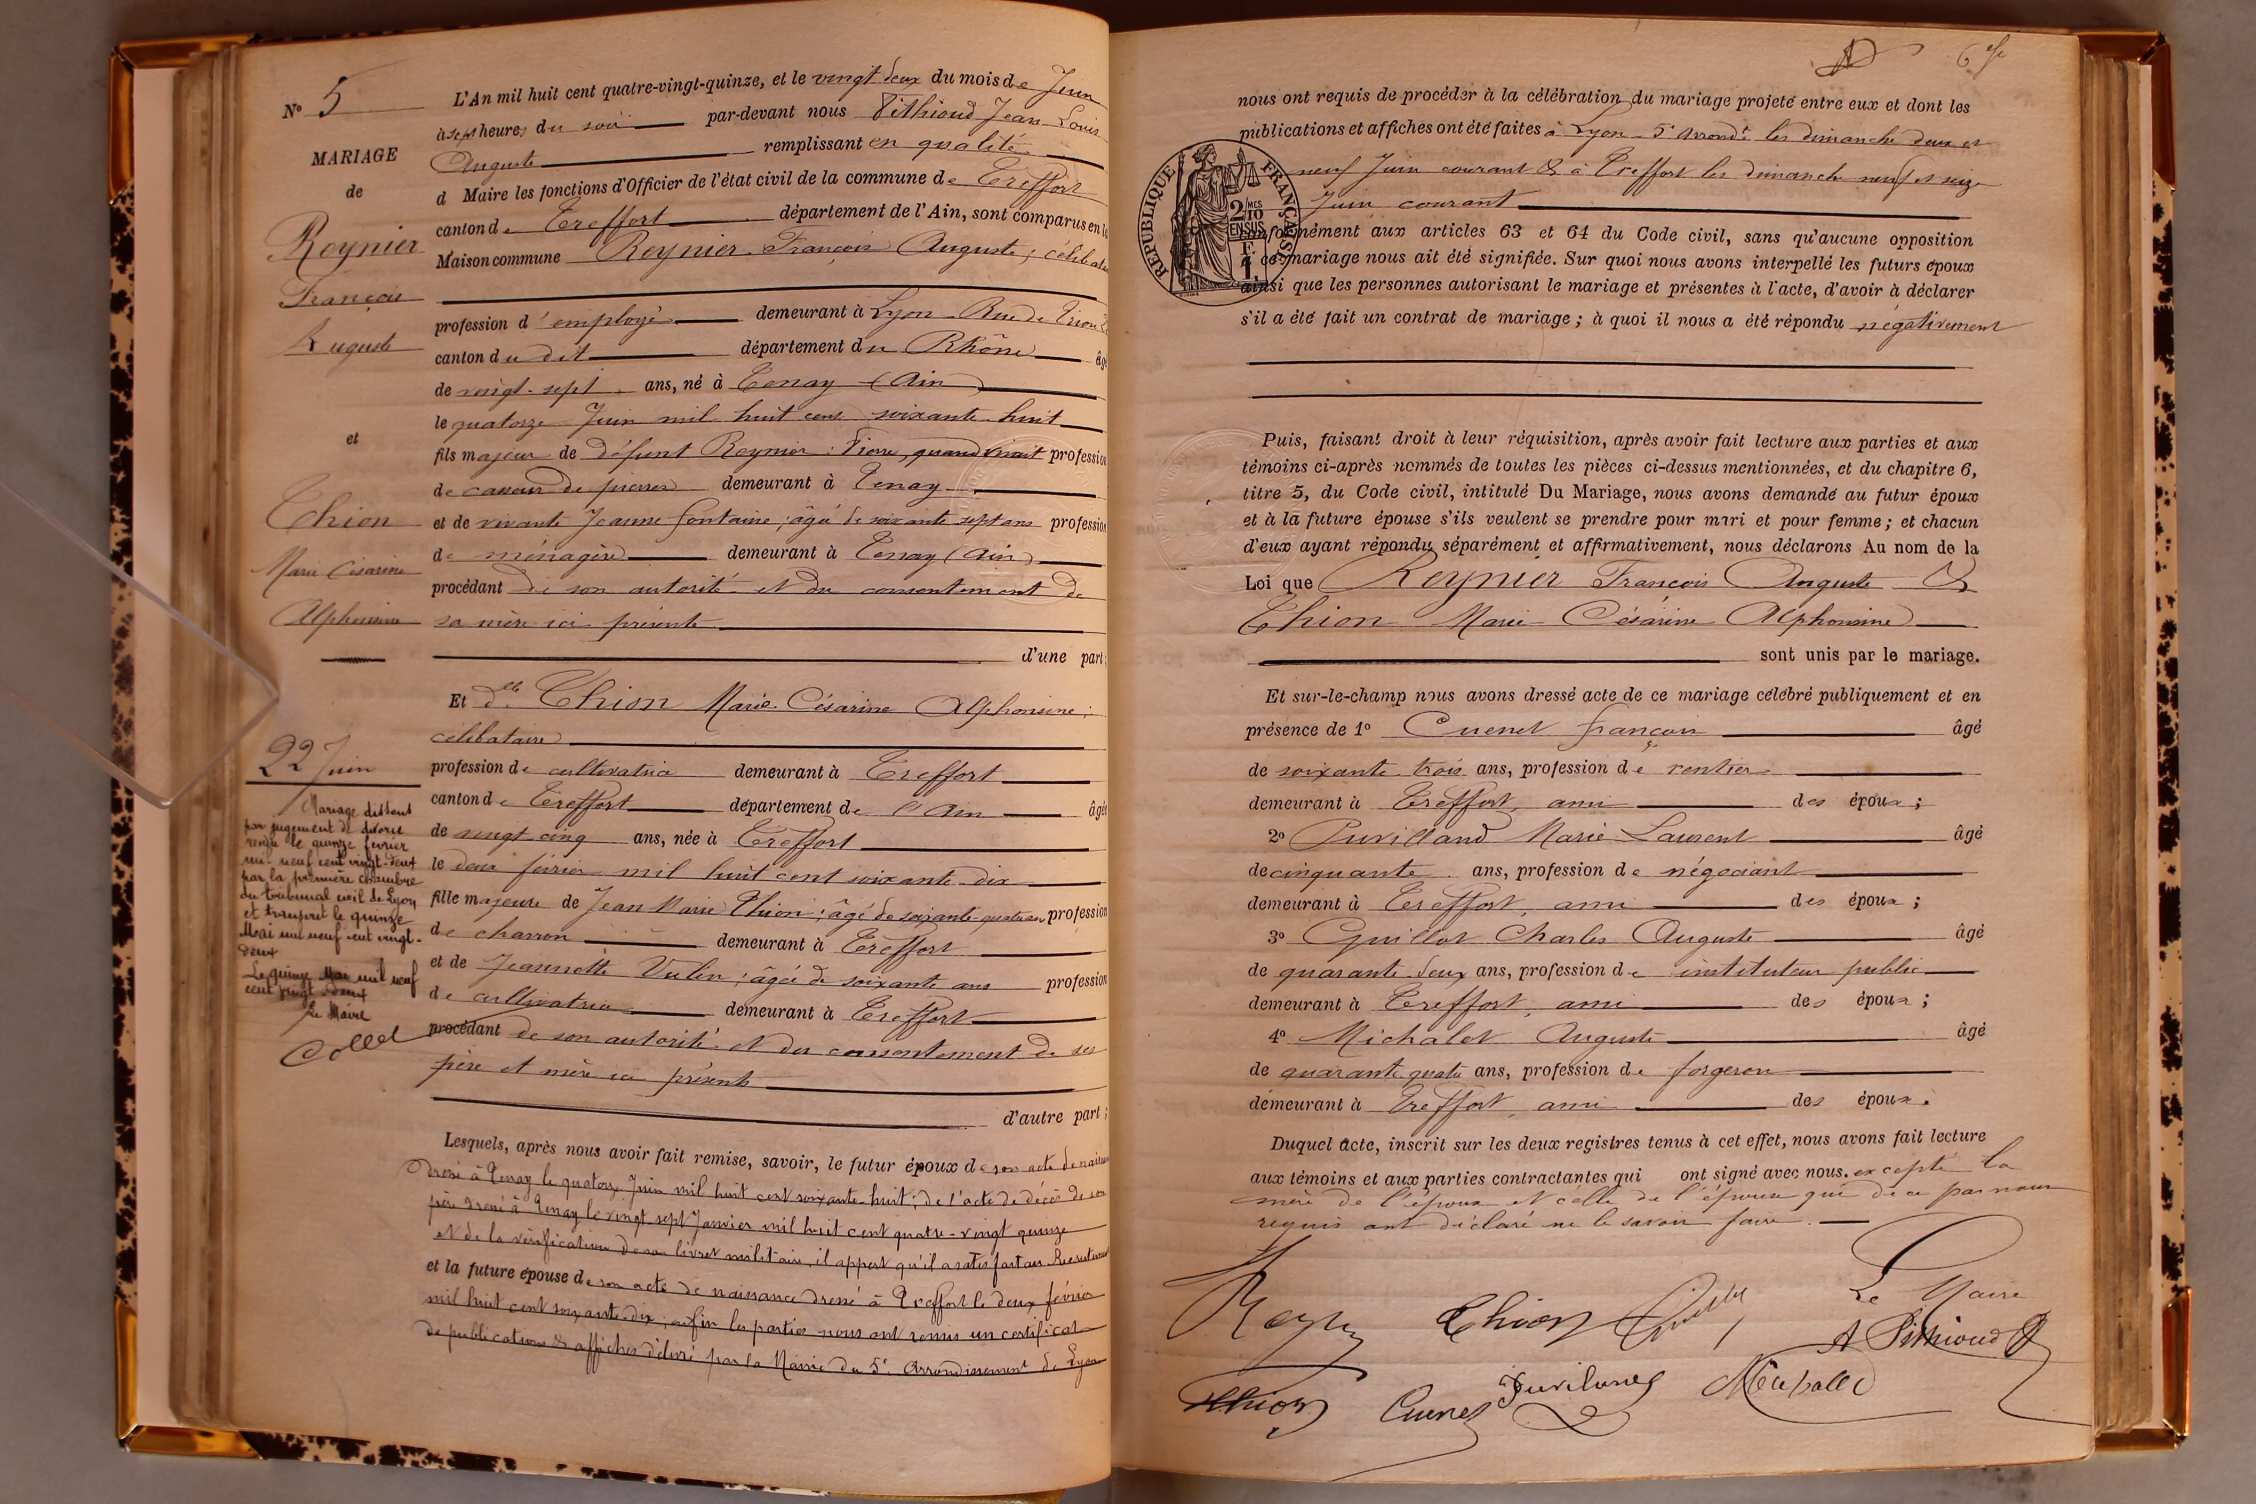 N° 5
MARIAGE
de
Reynier
François
Auguste
et
Thion
Marie Césarine
Alphonsine
22 Juin
Mariage dissout
par jugement de divorce
rendu le quinze février
mil neuf cent vingt-deux
par la première chambre
du tribunal civil de Lyon
et transcrit le quinze
Mai mil neuf cent vingt-
deux
Le quinze Mai mil neuf
cent vingt deux
Le Maire
Collet
L'An mil huit cent quatre-vingt-quinze, et le vingt deux du mois de Juin
à sept heures du soir par-devant nous Pithioud Jean Louis
Auguste remplissant en qualité
d Maire les fonctions d'Officier de l'état civil de la commune de Treffort
canton de Treffort département de l'Ain, sont comparus en la
Maison commune Reynier François Auguste ; célibataire
profession d'employé demeurant à Lyon Rue de Trion
canton du dit département du Rhône âgé
de vingt-sept ans, né à Tenay (Ain)
le quatorze Juin mil huit cent soixante-huit
fils majeur de défunt Reynier Pierre, quand vivait profession
de casseur de pierres demeurant à Tenay
et de vivante Jeanne Fontaine ; âgée de soixante sept ans profession
de ménagère demeurant à Tenay (Ain)
procédant de son autorité et du consentement de
sa mère ici présente
d'une part ;
Et dlle Thion Marie Césarine Alphonsine ;
célibataire
profession de cultivatrice demeurant à Treffort
canton de Treffort département de l'Ain âgée
de vingt cinq ans, née à Treffort
le deux février mil huit cent soixante-dix
fille majeure de Jean Marie Thion ; âgé de soixante-quatre ans profession
de charron demeurant à Treffort
et de Jeannette Vulin ; âgée de soixante ans profession
de cultivatrice demeurant à Treffort
procédant de son autorité et du consentement de ses
père et mère ici présents
d'autre part ;
Lesquels, après nous avoir fait remise, savoir, le futur époux de son acte de naissance
dressé à Tenay le quatorze Juin mil huit cent soixante-huit ; de l'acte de décès de son
père dressé à Tenay le vingt sept Janvier mil huit cent quatre-vingt quinze
et de la vérification de son livret militaire, il appert qu'il a satisfait au Recrutement
et la future épouse de son acte de naissance dressé à Treffort le deux février
mil huit cent soixante-dix ; enfin les parties nous ont remis un certificat
de publications & affiches délivré par la Mairie du 5e Arrondissement de Lyon
6
nous ont requis de procéder à la célébration du mariage projeté entre eux et dont les
publications et affiches ont été faites à Lyon 5e Arrondt les dimanche deux et
neuf Juin courant & à Treffort les dimanche neuf et seize
Juin courant
RÉPUBLIQUE FRANÇAISE
2/10MES EN SUS
1 F.
conformément aux articles 63 et 64 du Code civil, sans qu'aucune opposition
à ce mariage nous ait été signifiée. Sur quoi nous avons interpellé les futurs époux
ainsi que les personnes autorisant le mariage et présentes à l'acte, d'avoir à déclarer
s'il a été fait un contrat de mariage ; à quoi il nous a été répondu négativement
Puis, faisant droit à leur réquisition, après avoir fait lecture aux parties et aux
témoins ci-après nommés de toutes les pièces ci-dessus mentionnées, et du chapitre 6,
titre 5, du Code civil, intitulé Du Mariage, nous avons demandé au futur époux
et à la future épouse s'ils veulent se prendre pour mari et pour femme ; et chacun
d'eux ayant répondu séparément et affirmativement, nous déclarons Au nom de la
Loi que Reynier François Auguste &
Thion Marie Césarine Alphonsine
sont unis par le mariage.
Et sur-le-champ nous avons dressé acte de ce mariage célébré publiquement et en
présence de 1° Cuenet François âgé
de soixante trois ans, profession de rentier
demeurant à Treffort, ami des époux ;
2° Puvilland Marie Laurent âgé
de cinquante ans, profession de négociant
demeurant à Treffort, ami des époux ;
3° Guillot Charles Auguste âgé
de quarante-deux ans, profession de instituteur public
demeurant à Treffort, ami des époux ;
4° Michalet Auguste âgé
de quarante quatre ans, profession de forgeron
demeurant à Treffort, ami des époux.
Duquel acte, inscrit sur les deux registres tenus à cet effet, nous avons fait lecture
aux témoins et aux parties contractantes qui ont signé avec nous. excepté la
mère de l'époux et celle de l'épouse qui de ce par nous
requis ont déclaré ne le savoir faire.
Thion
Le Maire
A Pithioud
Thion
Cuenet
Puviland
Michalet